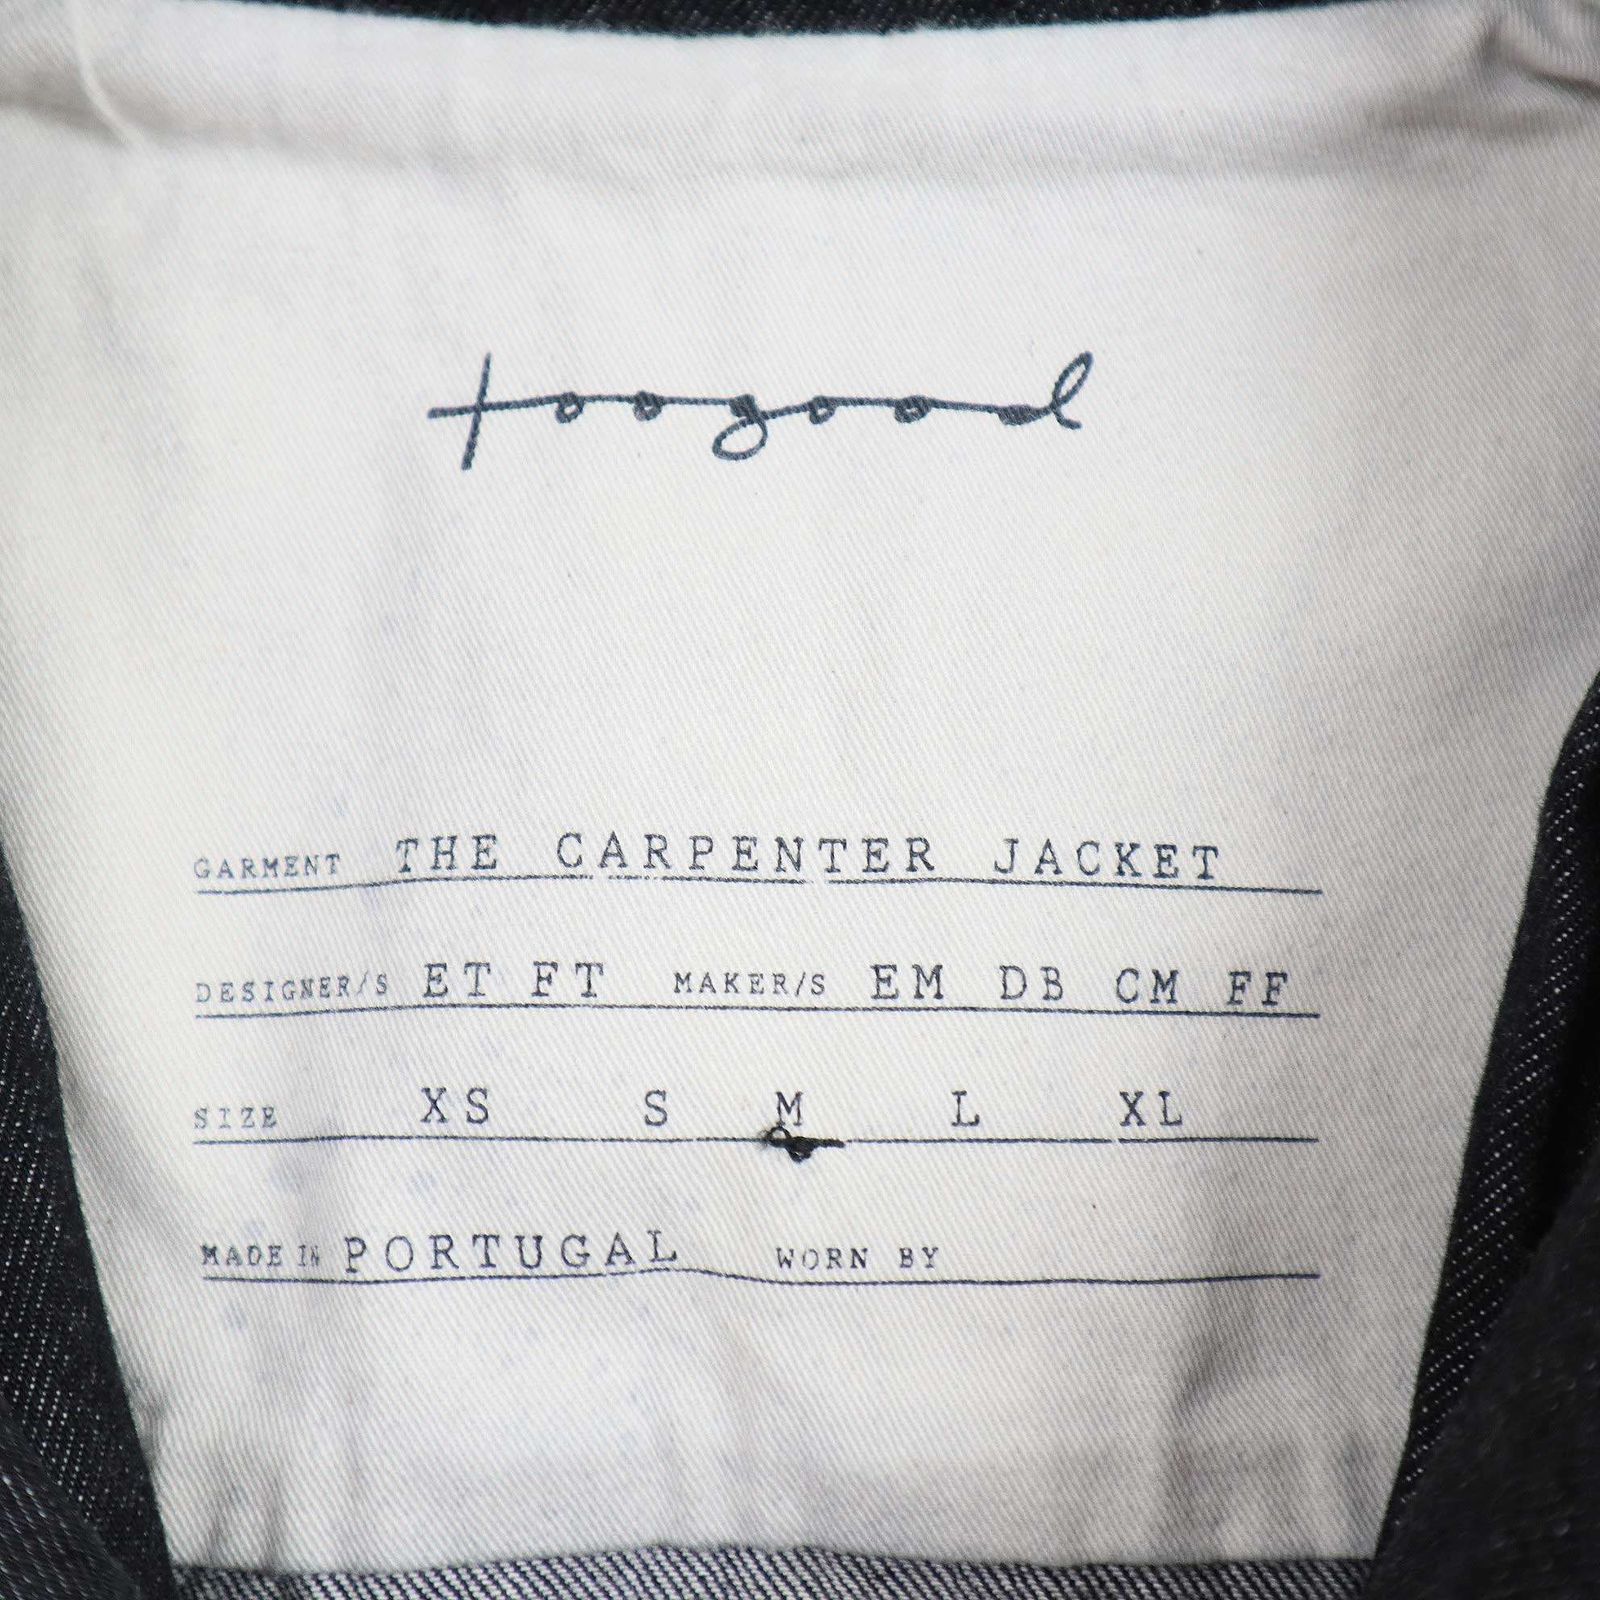 toogood
GARMENT THE CARPENTER JACKET
DESIGNER/S ET FT MAKER/S EM DB CM FF
SIZE XS S M L XL
MADE IN PORTUGAL WORN BY